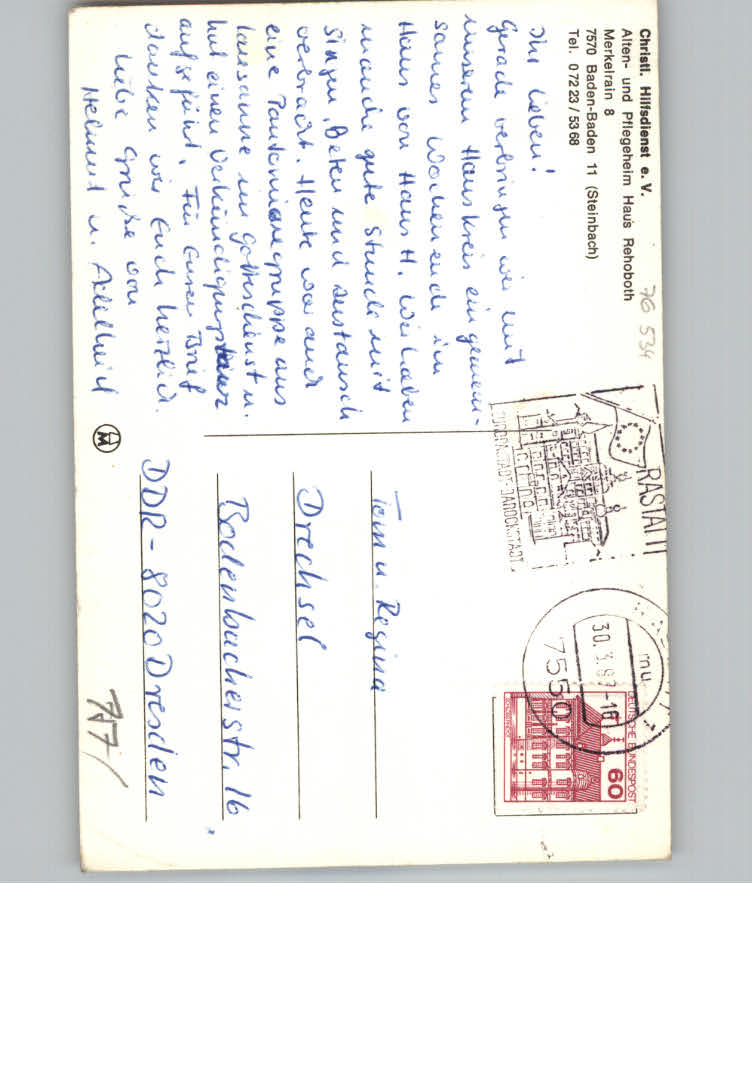 Christl. Hilfsdienst e. V.
Alten- und Pflegeheim Haus Rehoboth
Merkelrain 8
7570 Baden-Baden 11 (Steinbach)
Tel. 0 72 23 / 53 68
76 534
Ihr Lieben!
Gerade verbringen wir mit
unserem Hauskreis ein gemein-
sames Wochenende im
Haus von Haus H. Wir haben
manche gute Stunde mit
Singen, Beten und Austausch
verbracht. Heute war auch
eine Pantomimegruppe aus
Lausanne im Gottesdienst u.
hat einen Verkündigungstanz
aufgeführt. Für Euren Brief
danken wir Euch herzlich.
Liebe Grüße von
Helmut u. Adelheid
M
RASTATT
EUROPASTADT-BAROCKSTADT
30.3.87-16
7550
mu
DEUTSCHE BUNDESPOST
60
Tom u. Regina
Drechsel
Bodenbacherstr. 16
DDR - 8020 Dresden
7,-